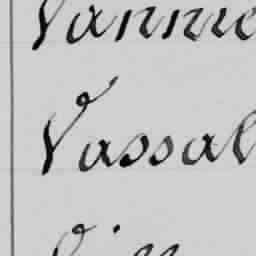 Vannie
Vassal